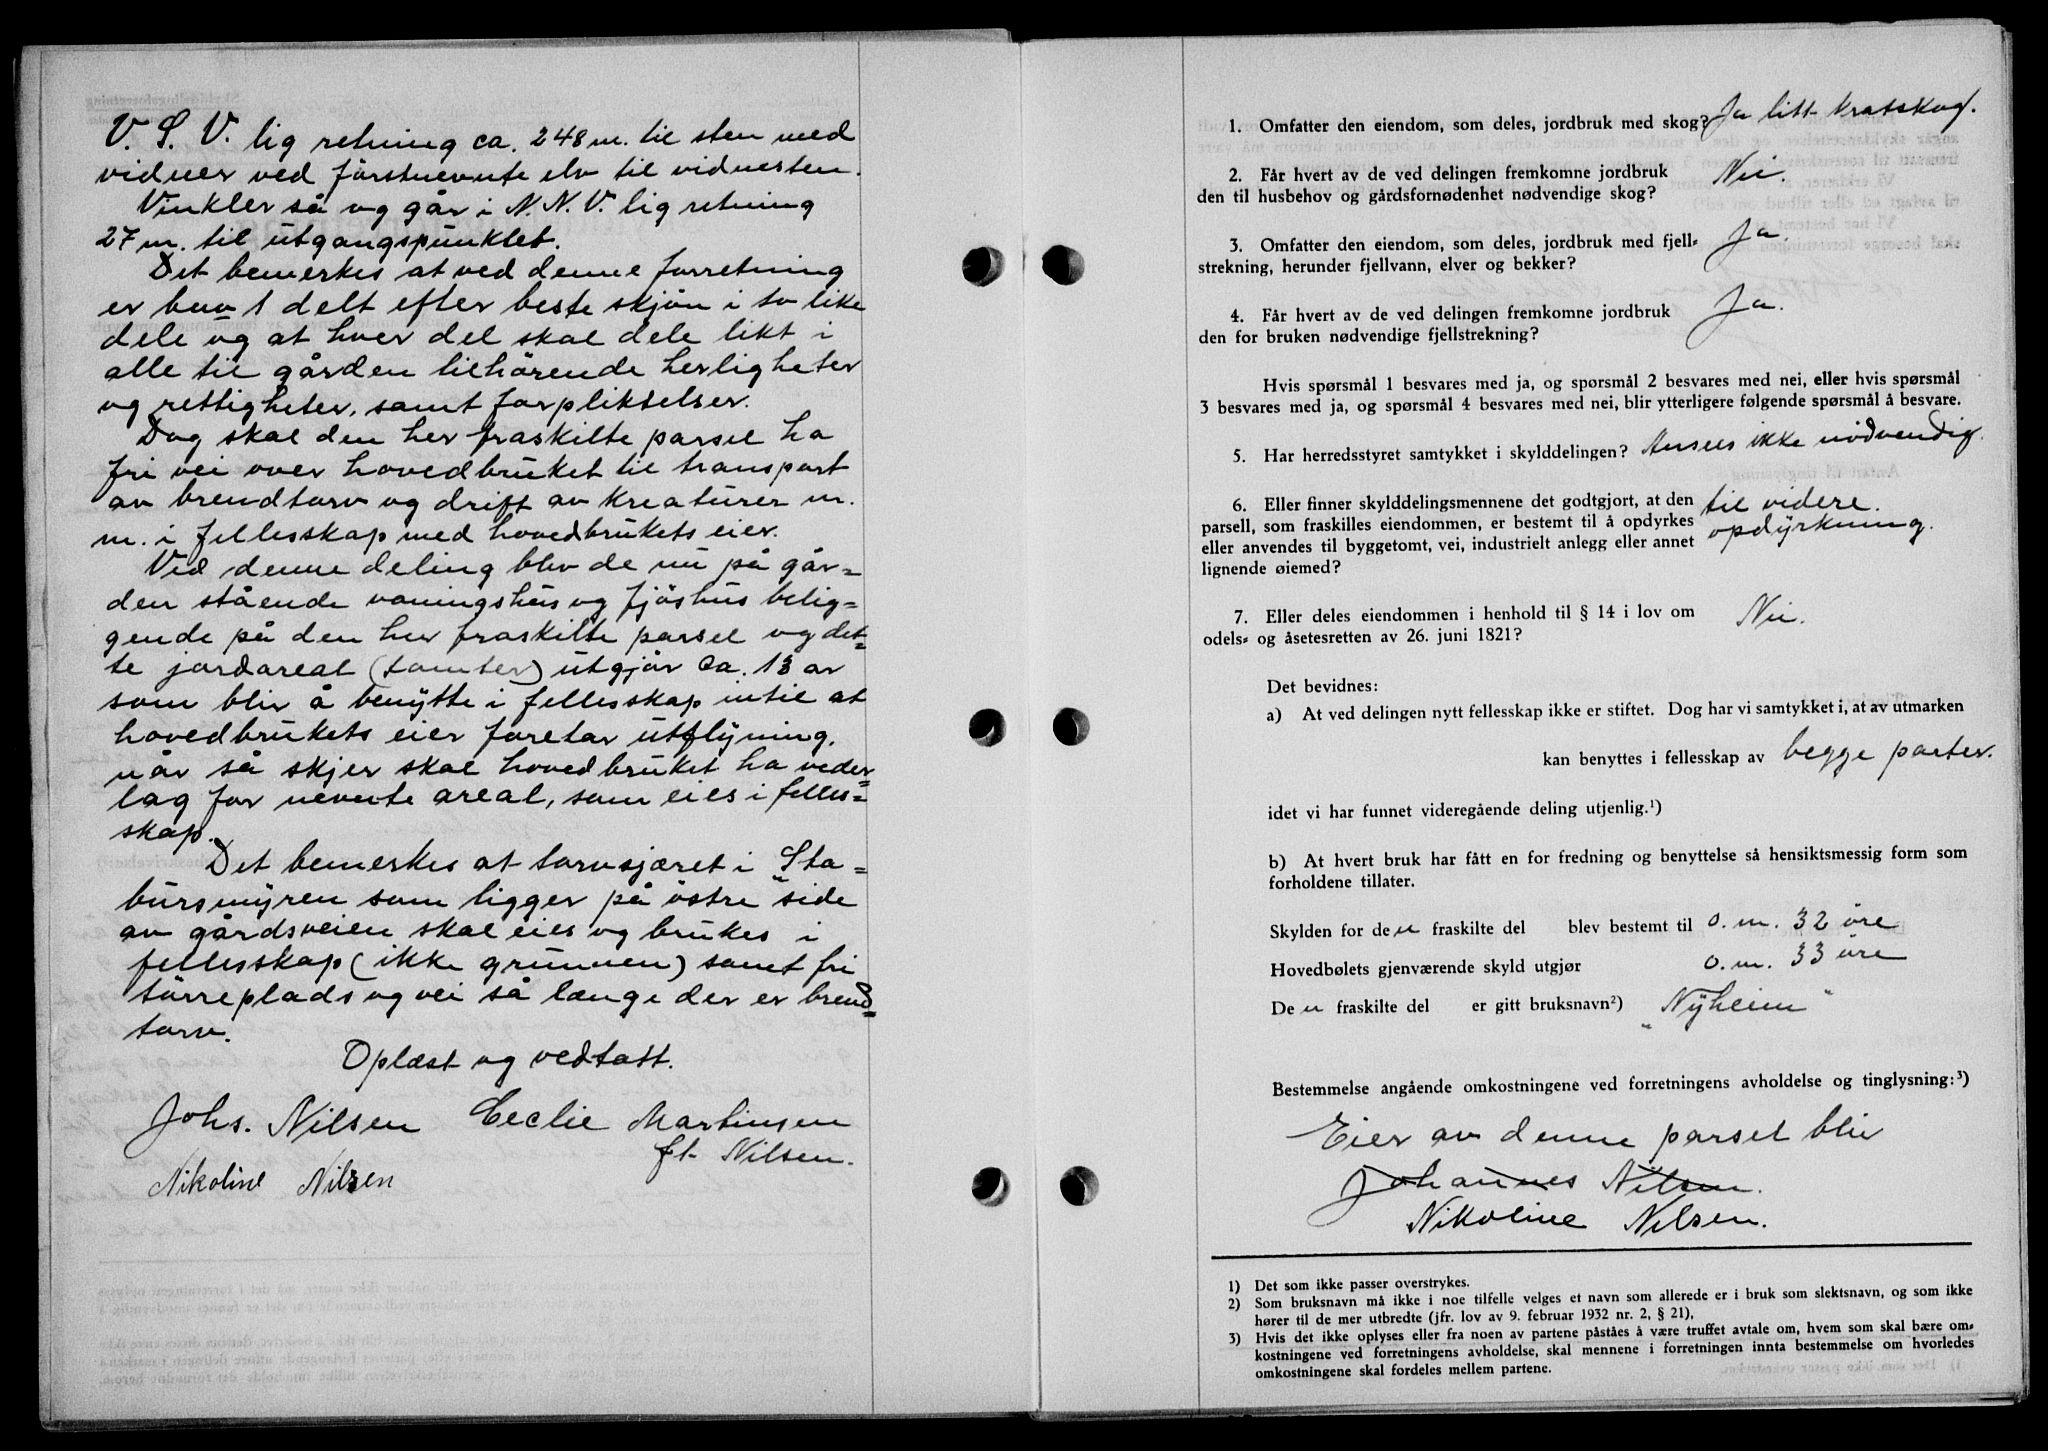 V. S. V. lig retning ca. 248 m. til sten med
vidner ved förstnevnte elv til vidnesten.
Vinkler så og går i N. N. V. lig retning
27 m. til utgangspunktet.
Det bemerkes at ved denne forretning
er bna 1 delt efter beste skjön i to like
dele og at hver del skal dele likt i
alle til gården tilhörende herligheter
og rettigheter, samt forpliktelser.
Dog skal den her fraskilte parsel ha
fri vei over hovedbruket til transport
av brendtorv og drift av kreaturer m.
m. i fellesskap med hovedbrukets eier.
Ved denne deling blev de nu på går=
den stående vaningshus og fjöshus belig=
gende på den her fraskilte parsel og det=
te jordareal (tomter) utgjör ca. 13 ar
som blir å benytte i fellesskap intil at
hovedbrukets eier foretar utflyning.
når så skjer skal hovedbruket ha veder=
lag for nevnte areal, som eies i felles=
skap.
Det bemerkes at torvsjæret i Sta=
bursmyren som ligger på östre side
av gårdsveien skal eies og brukes i
fellesskap (ikke grunnen) samt fri
törreplads og vei så længe der er brend=
torv.
Oplæst og vedtatt.
Johs. Nilsen Cecilie Martinsen
ft. Nilsen.
Nikoline Nilsen
1. Omfatter den eiendom, som deles, jordbruk med skog? Ja litt kratskog.
2. Får hvert av de ved delingen fremkomne jordbruk Nei.
den til husbehov og gårdsfornødenhet nødvendige skog?
3. Omfatter den eiendom, som deles, jordbruk med fjell= Ja.
strekning, herunder fjellvann, elver og bekker?
4. Får hvert av de ved delingen fremkomne jordbruk Ja.
den for bruken nødvendige fjellstrekning?
Hvis spørsmål 1 besvares med ja, og spørsmål 2 besvares med nei, eller hvis spørsmål
3 besvares med ja, og spørsmål 4 besvares med nei, blir ytterligere følgende spørsmål å besvare.
5. Har herredsstyret samtykket i skylddelingen? Ansees ikke nödvendig.
6. Eller finner skylddelingsmennene det godtgjort, at den til videre
parsell, som fraskilles eiendommen, er bestemt til å opdyrkes opdyrkning.
eller anvendes til byggetomt, vei, industrielt anlegg eller annet
lignende øiemed?
7. Eller deles eiendommen i henhold til § 14 i lov om Nei.
odels= og åsetesretten av 26. juni 1821?
Det bevidnes:
a) At ved delingen nytt fellesskap ikke er stiftet. Dog har vi samtykket i, at av utmarken
kan benyttes i fellesskap av begge parter.
idet vi har funnet videregående deling utjenlig.¹)
b) At hvert bruk har fått en for fredning og benyttelse så hensiktsmessig form som
forholdene tillater.
Skylden for den fraskilte del blev bestemt til 0. m. 32 öre
Hovedbølets gjenværende skyld utgjør 0. m. 33 öre
Den fraskilte del er gitt bruksnavn²) "Nyheim"
Bestemmelse angående omkostningene ved forretningens avholdelse og tinglysning:³)
Eier av denne parsel blir
Johannes Nilsen.
Nikoline Nilsen.
1) Det som ikke passer overstrykes.
2) Som bruksnavn må ikke i noe tilfelle velges et navn som allerede er i bruk som slektsnavn, og som ikke
hører til de mer utbredte (jfr. lov av 9. februar 1932 nr. 2, § 21),
3) Hvis det ikke oplyses eller fra noen av partene påståes å være truffet avtale om, hvem som skal bære om=
kostningene ved forretningens avholdelse, skal mennene i forretningen innta bestemmelse om hvorledes
omkostningene skal fordeles mellem partene.